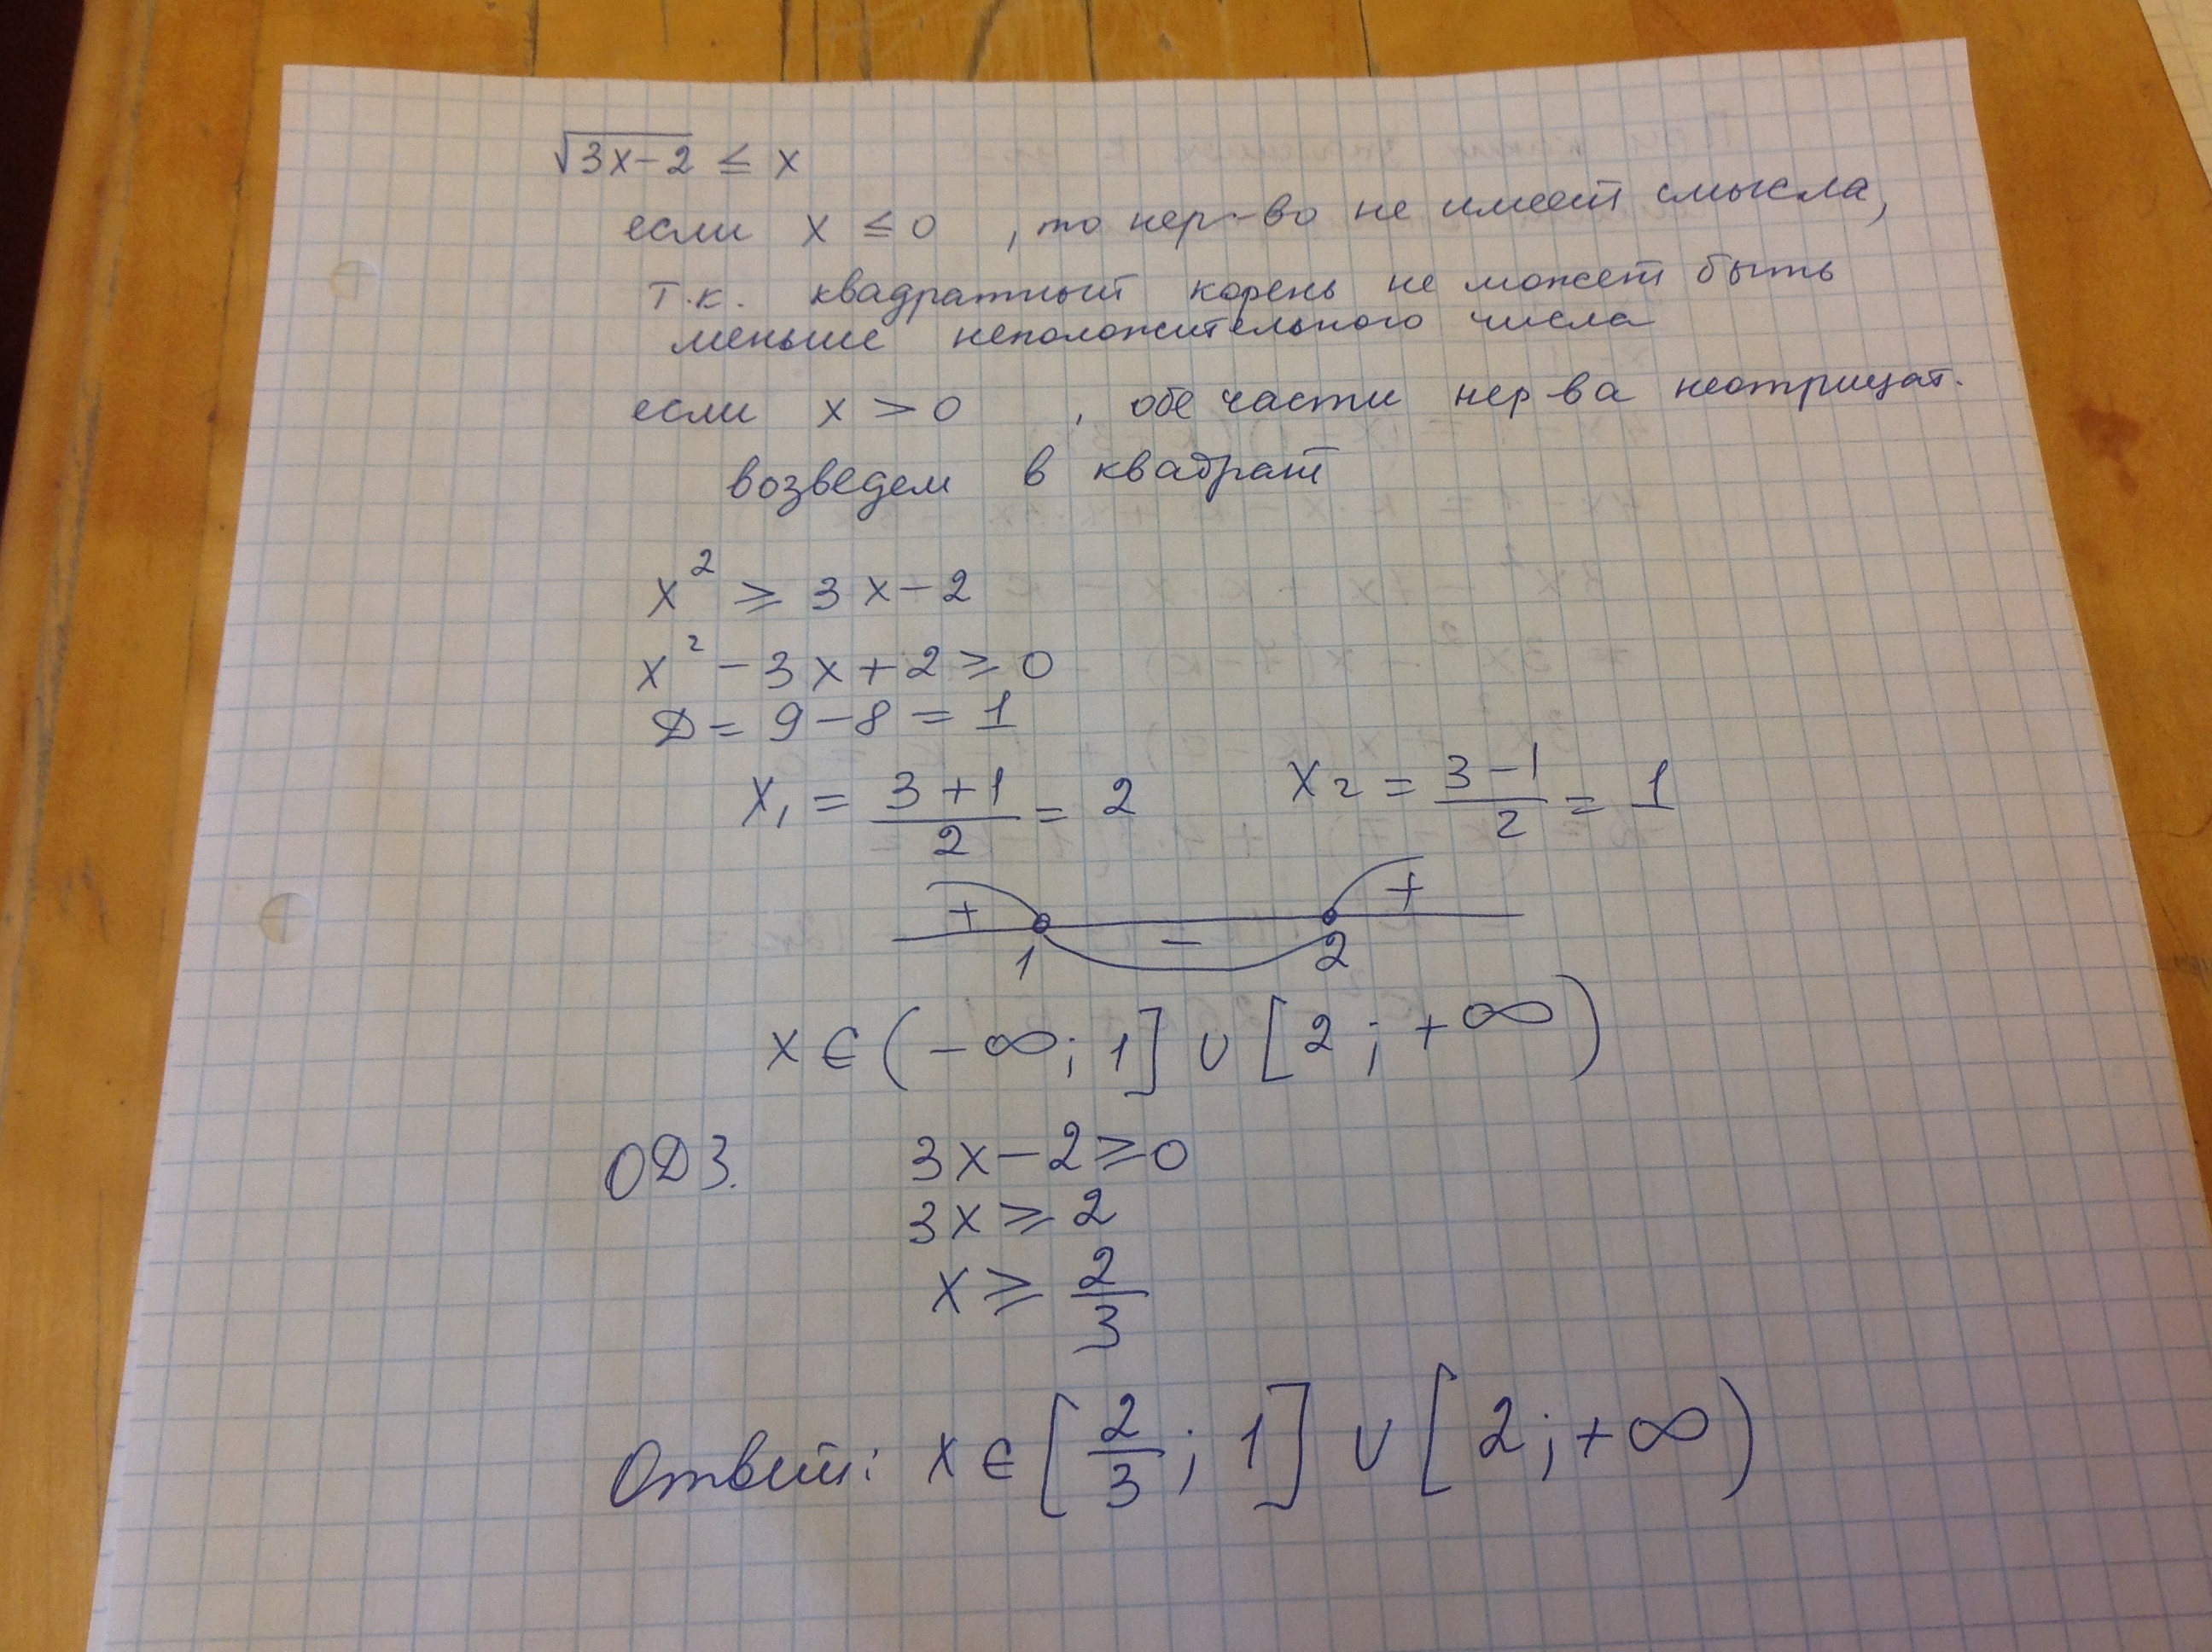 √3x-2 ≤ x
если x ≤ 0 , то нер-во не имеет смысла,
т.к. квадратный корень не может быть
меньше неположительного числа
если x > 0 , обе части нер ва неотрицат.
возведем в квадрат
x² ≥ 3x-2
x² - 3x + 2 ≥ 0
D = 9 - 8 = 1
x₁ = (3+1)/2 = 2 x₂ = (3-1)/2 = 1
+ - +
1 2
x ∈ (-∞; 1] ∪ [2; +∞)
ОДЗ. 3x - 2 ≥ 0
3x ≥ 2
x ≥ 2/3
Ответ: x ∈ [2/3; 1] ∪ [2; +∞)